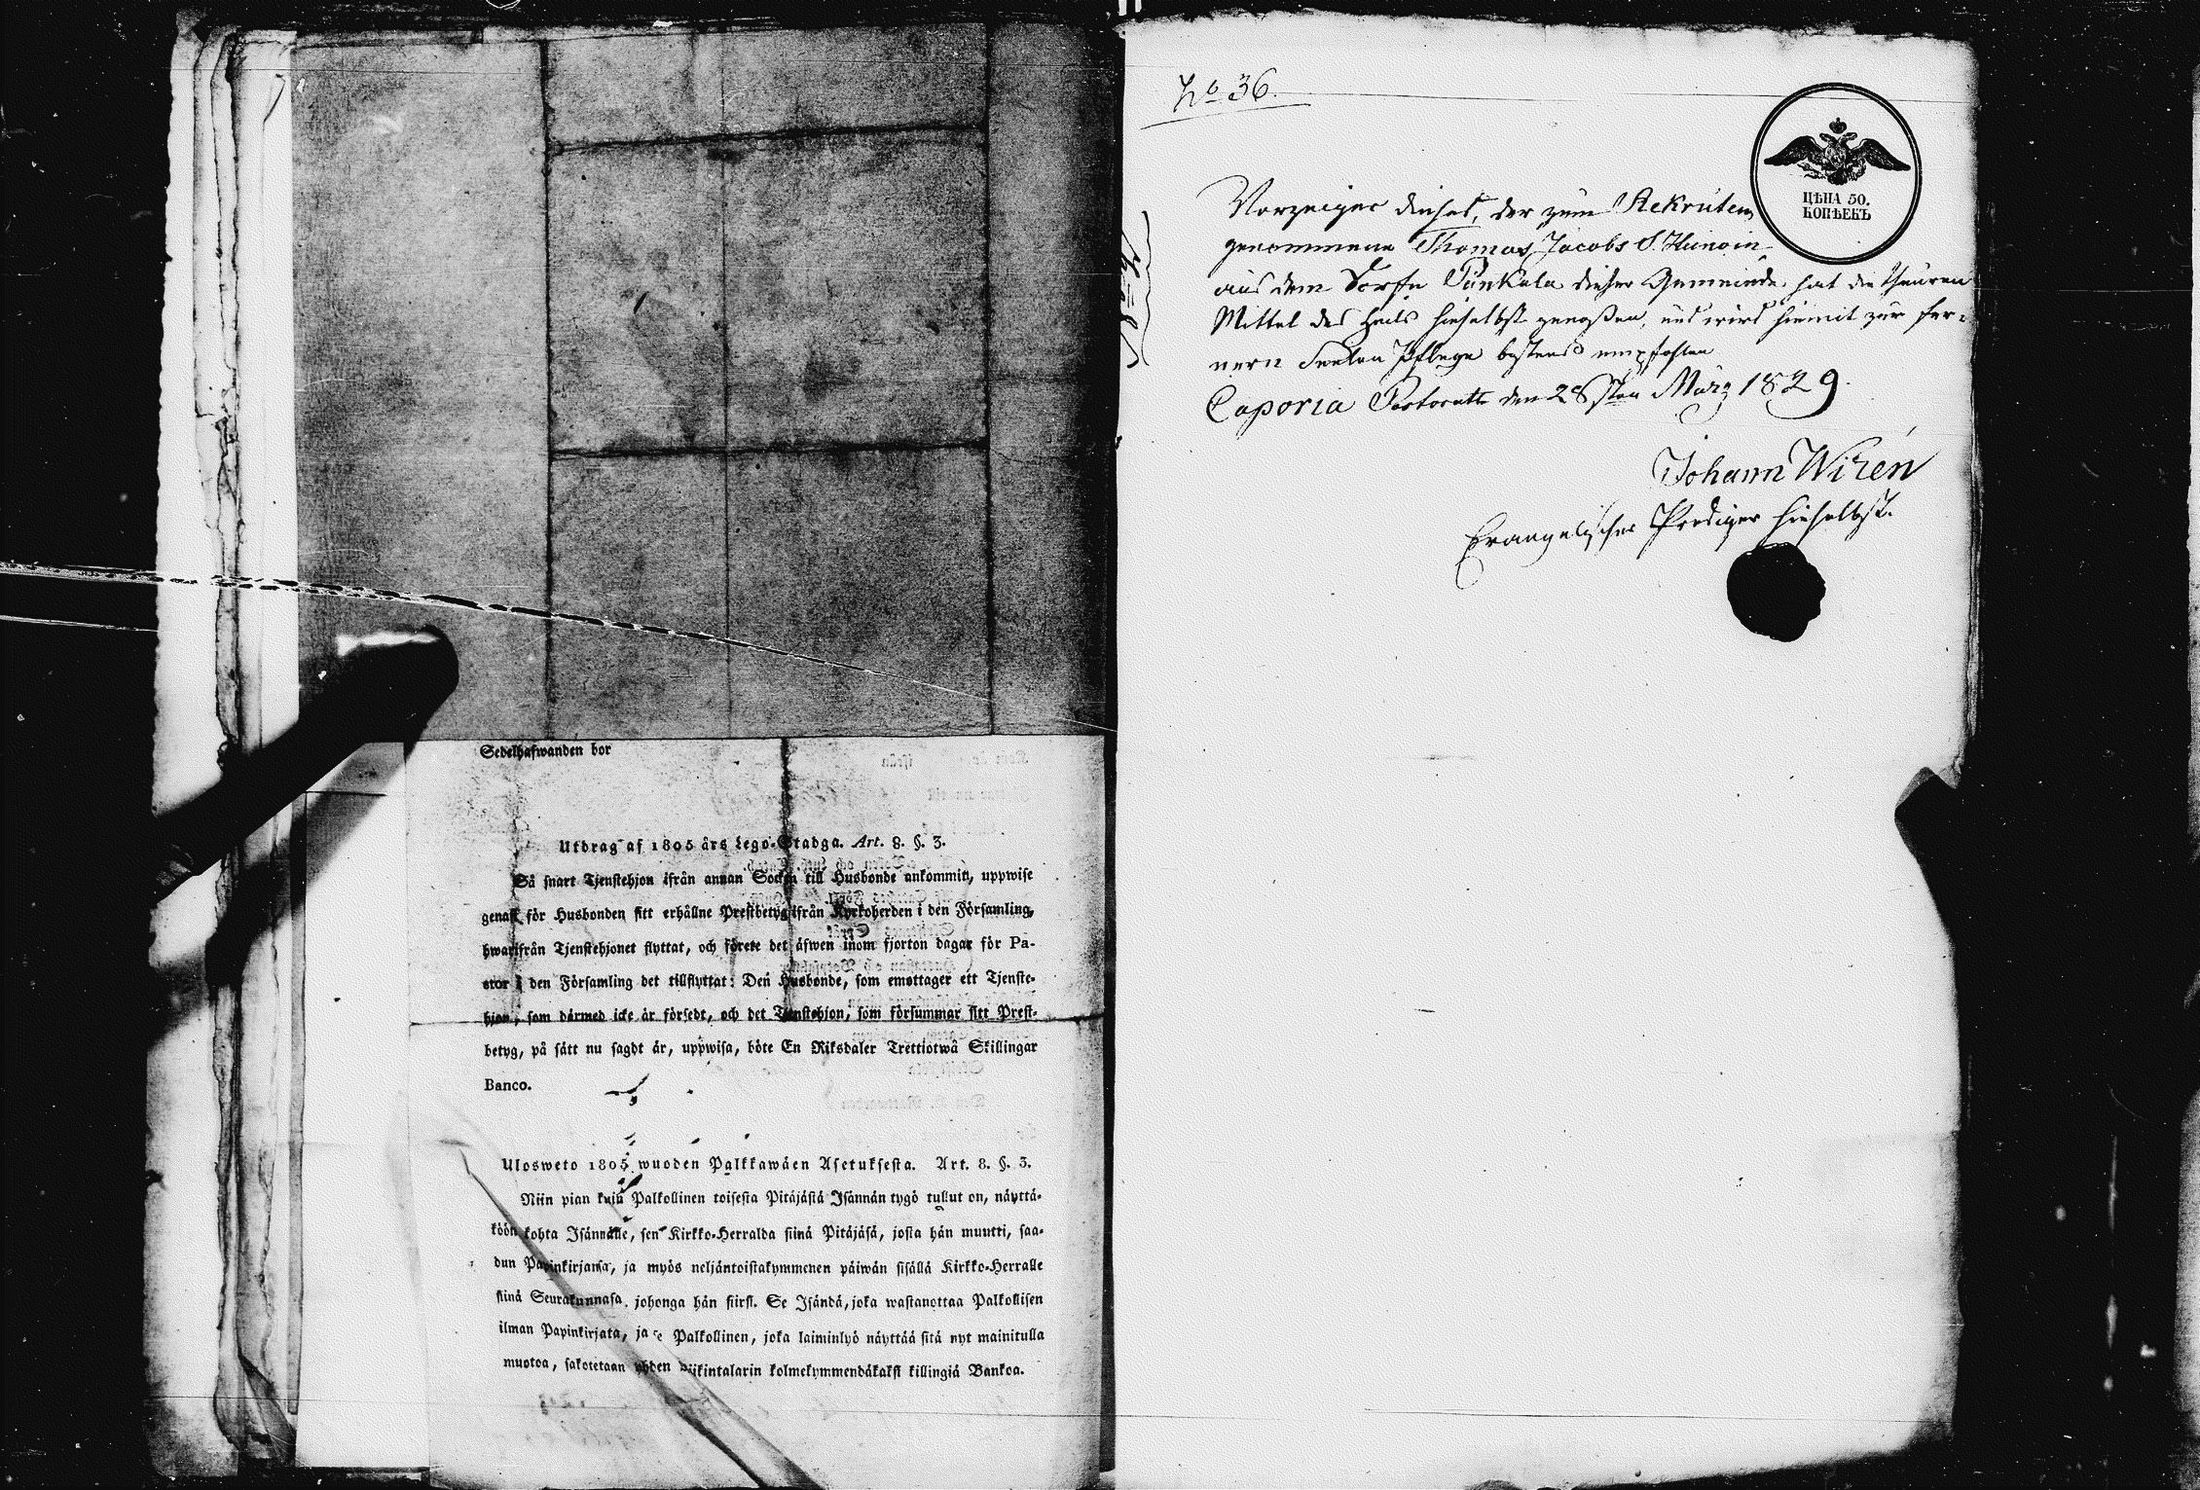 Sedelhafwanden bor
Utdrag af 1805 års Lego-Stadga. Art. 8. §. 3.
Så snart Tjenstehjon ifrån annan Socken till Husbonde ankommit, uppwise
genast för Husbonden sitt erhållne Prestbetyg ifrån Kyrkoherden i den Församling,
hwarifrån Tjenstehjonet flyttat, och förete det äfwen inom fjorton dagar för Pa-
stor i den Församling det tillflyttat: Den Husbonde, som emottager ett Tjenste-
hjon, som dermed icke är försedt, och det Tjenstehjon, som försummar sitt Prest-
betyg, på sätt nu sagdt är, uppwisa, böte En Riksdaler Trettiotwå Skillingar
Banco.
Ulosweto 1805 wuoden Palkkawäen Asetuksesta. Art. 8. §. 3.
Niin pian kuin Palkollinen toisesta Pitäjästä Isännän tygö tullut on, näyttä-
köön kohta Isännälle, sen Kirkko-Herralda siinä Pitäjäsä, josta hän muutti, saa-
dun Papinkirjansa, ja myös neljäntoistakymmenen päiwän sisällä Kirkko-Herralle
siinä Seurakunnasa, johonga hän siirsi. Se Isändä, joka wastanottaa Palkollisen
ilman Papinkirjata, ja se Palkollinen, joka laiminlyö näyttää sitä nyt mainitulla
muotoa, sakotetaan yhden Riikintalarin kolmekymmendäkaksi killingiä Bankoa.
No 36.
ЦѢНА 50.
КОПѢЕКЪ
Vorzeiger dieses, der zum Rekruten
genommene Thomas Jacobs S. Huinoin
aus dem Dorfe Punkala dieser Gemeinde hat die theuren
Mittel des Heils hieselbst genoßen, und wird hiemit zur fer-
nern Seelen Pflege bestens empfohlen
Caporia Pastorath den 28sten März 1829.
Johann Wirén
Evangelischer Prediger hieselbst.